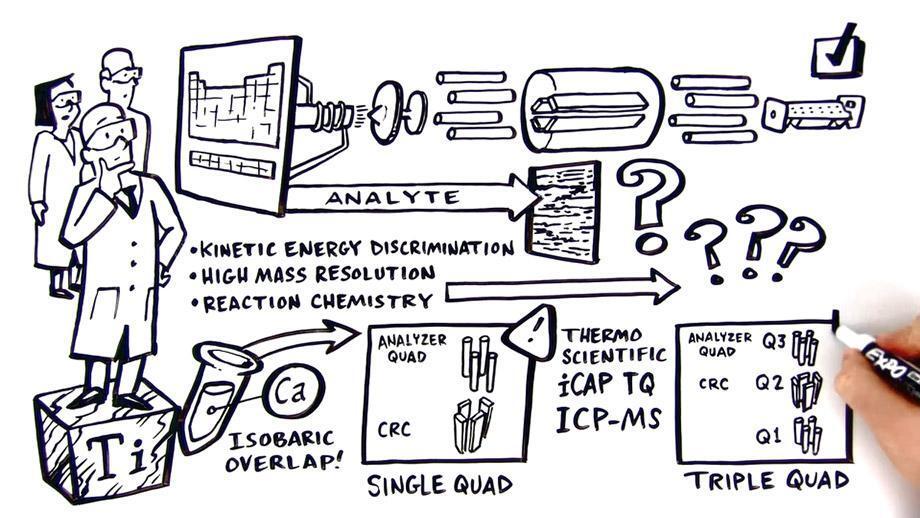 ANALYTE
•KINETIC ENERGY DISCRIMINATION
•HIGH MASS RESOLUTION
•REACTION CHEMISTRY
Ti
Ca
ISOBARIC
OVERLAP!
ANALYZER
QUAD
CRC
SINGLE QUAD
!
THERMO
SCIENTIFIC
iCAP TQ
ICP-MS
ANALYZER Q3
QUAD
CRC Q2
Q1
TRIPLE QUAD
?
? ? ?
EXPO